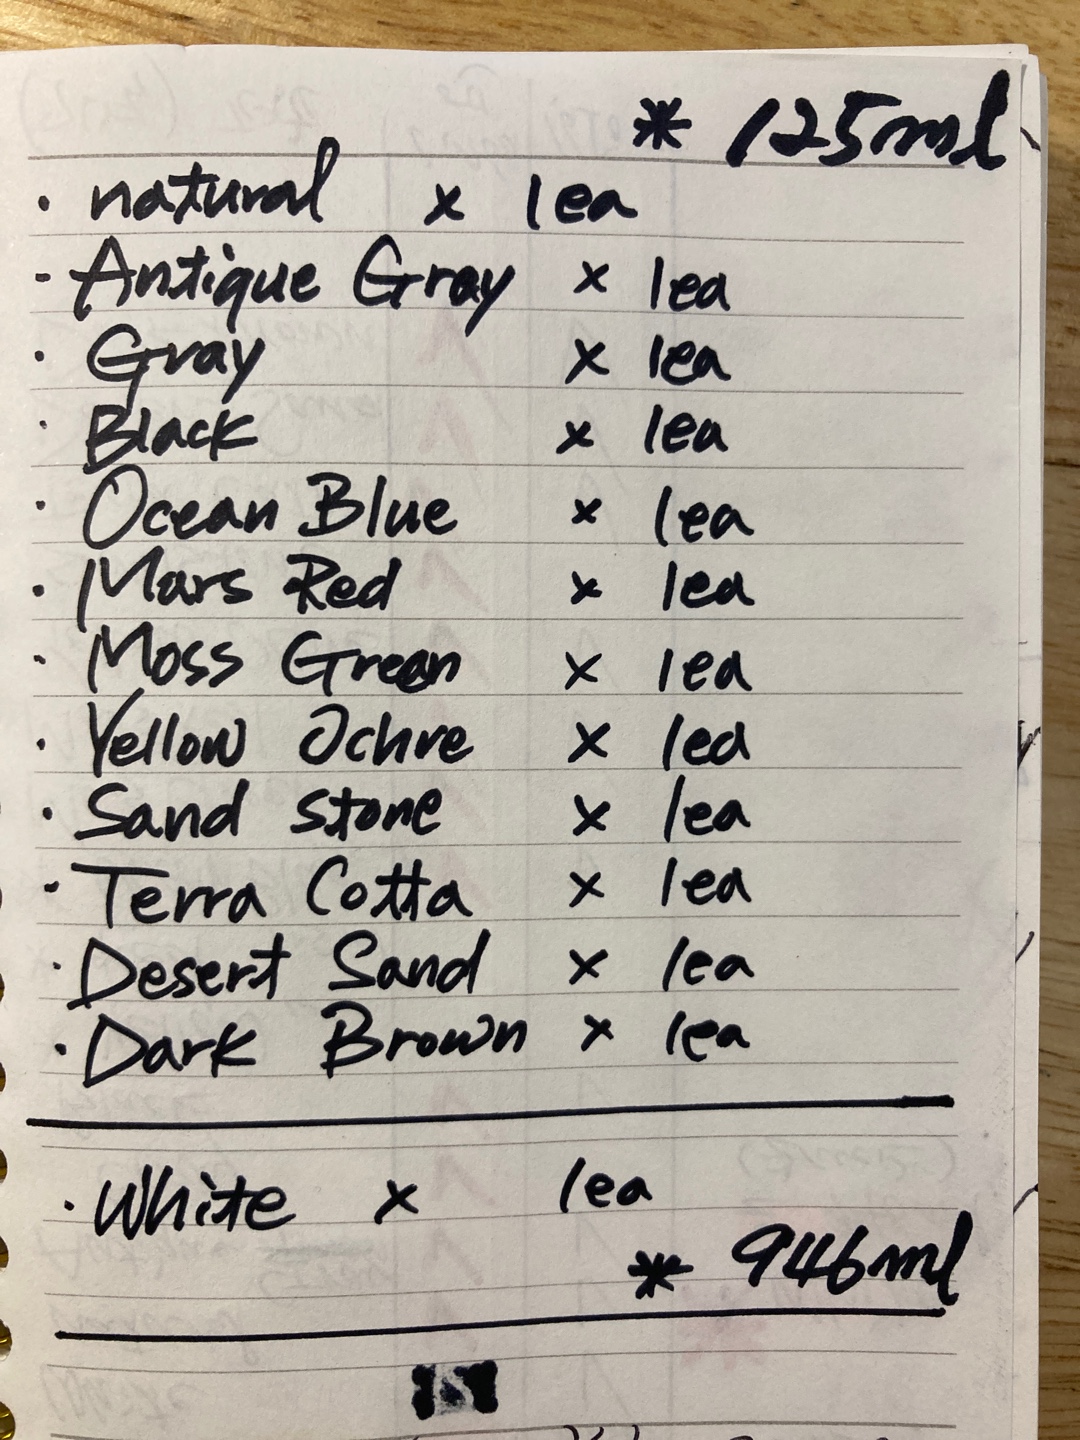 * 125ml
· natural x 1ea
- Antique Gray x 1ea
· Gray x 1ea
· Black x 1ea
· Ocean Blue x 1ea
· Mars Red x 1ea
· Moss Green x 1ea
· Yellow Ochre x 1ea
· Sand stone x 1ea
· Terra Cotta x 1ea
· Desert Sand x 1ea
· Dark Brown x 1ea
· White x 1ea
* 946ml